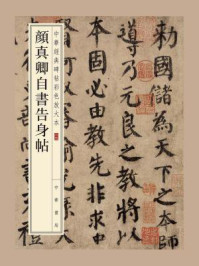 勅國儲為天下之本師
導乃元良之教將以
本固必由教先非求忠
中華經典碑帖彩色放大本
顏真卿自書告身帖
中華書局